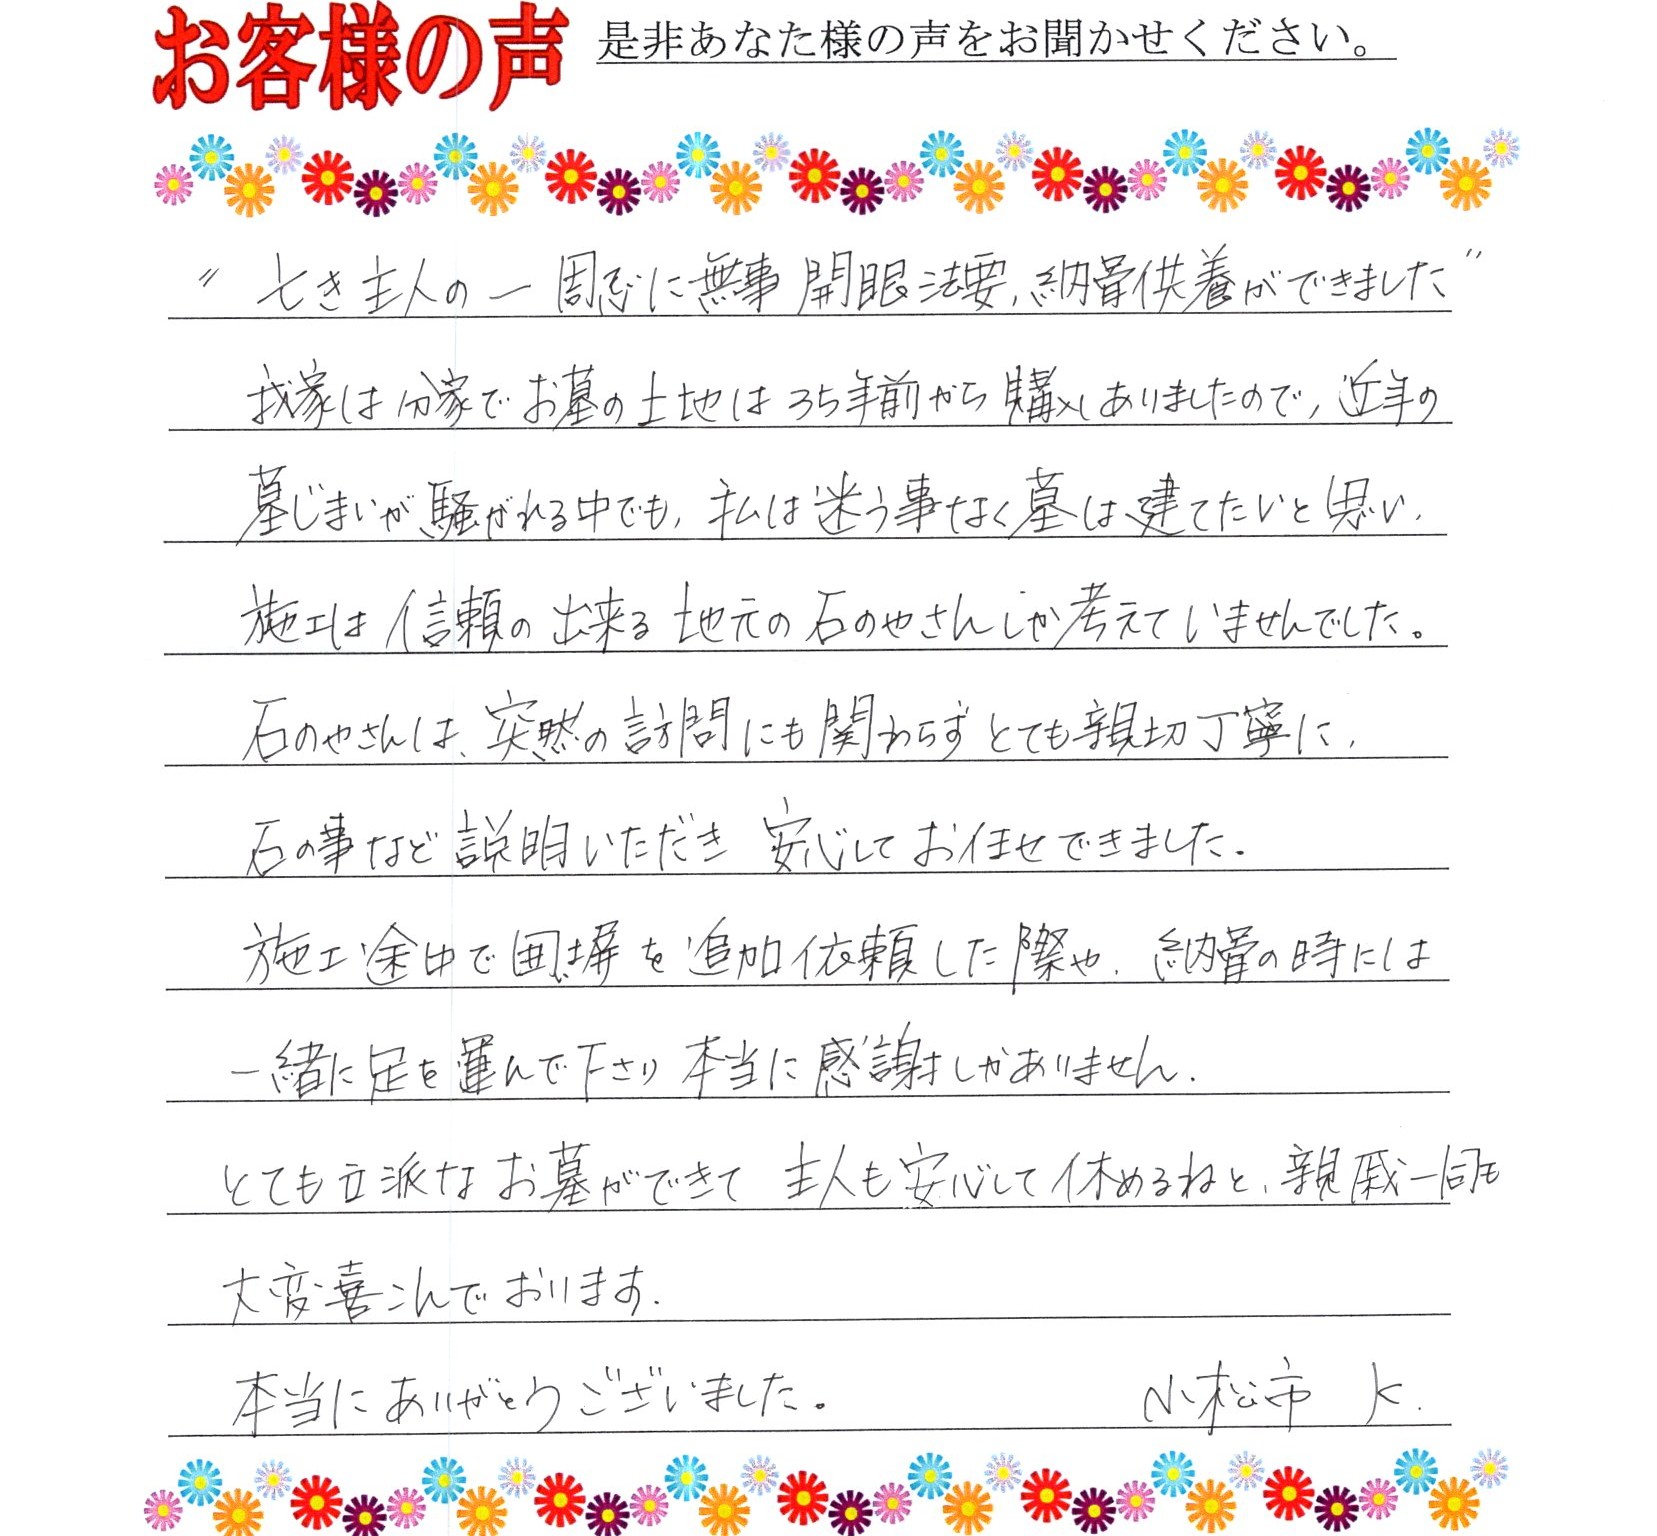 お客様の声 是非あなた様の声をお聞かせください。
〃亡き主人の一周忌に無事開眼法要、納骨供養ができました〃
我家は分家でお墓の土地は35年前から購入しありましたので、近年の
墓じまいが騒がれる中でも、私は迷う事なく墓は建てたいと思い、
施工は信頼の出来る地元の石のやさんしか考えていませんでした。
石のやさんは、突然の訪問にも関わらずとても親切丁寧に、
石の事など説明いただき安心してお任せできました。
施工途中で囲塀を追加依頼した際や、納骨の時には
一緒に足を運んで下さり本当に感謝しかありません。
とても立派なお墓ができて主人も安心して休めるねと、親戚一同も
大変喜こんでおります。
本当にありがとうございました。 小松市 K.